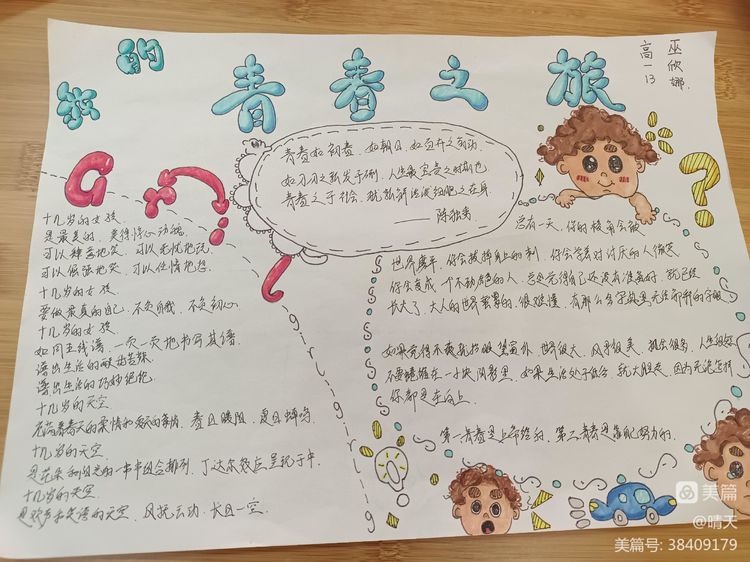 我的
青春之旅
高一13
巫欣娜
青春如初春，如朝日，如百卉之萌动，
如利刃之新发于硎，人生最宝贵之时期也
青春之于社会，犹新鲜活泼细胞之在身
——陈独秀
Girl
girlgirlgirlg
十几岁的女孩
是最美的，美得惊心动魄
可以肆意地笑，可以无忧地玩
可以倔强地哭，可以任情地怒
十几岁的女孩
要做最真的自己，不负自我，不负初心
十几岁的女孩
如同五线谱，一页一页地书写其谱
谱出生活的酸甜苦辣
谱出生活的巧妙绝伦
十几岁的天空
充满着春天的柔情和夏天的事情，春日暖阳，夏日蝉鸣
十几岁的天空
是花朵和阳光的一串串组合排列，丁达尔效应呈现于中
十几岁的天空
是欢声和笑语的天空，风轻云动，长日一空
总有一天，你的棱角会被
世界磨平，你会拔掉身上的刺，你会学着对讨厌的人微笑
你会变成一个不动声色的人，总是觉得自己还没有准备好，就已经
长大了，大人的世界
如果觉得不爽就抬眼望窗外，世界很大，风景很美，机会很多，人生短短
不要蜷缩在一小块阴影里，如果生活处于低谷，就大胆走，因为无论怎样
你都是在向上
第一青春是上帝给的，第二青春是靠自己努力的
美篇
@晴天
美篇号: 38409179